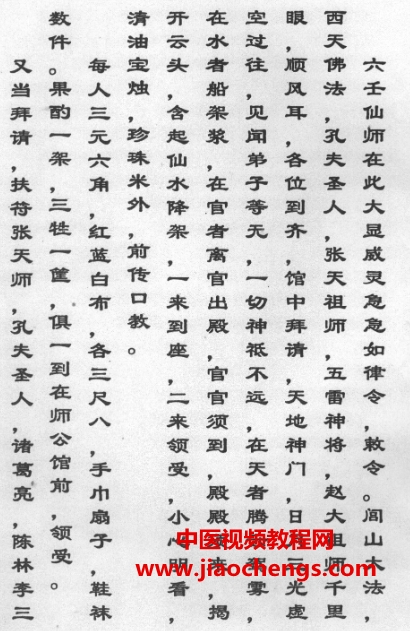 六壬仙师在此大显威灵急急如律令,敕令。闾山大法,
西天佛法,孔夫圣人,张天祖师,五雷神将,赵大祖师千里
眼,顺风耳,各位到齐,馆中拜请,天地神门,日光虚
空过往,见闻弟子等无,一切神祗不远,在天者腾雾,
在水者船架浆,在官者离官出殿,官官须到,殿殿揭
开云头,含起仙水降架,一来到座,二来领受,小心明看,
清油宝烛,珍珠米外,前传口教。
每人三元六角,红蓝白布,各三尺八,手巾扇子,鞋袜
数件。果酌一架,三牲一筐,俱一到在师公馆前,领受。
又当拜请,扶符张天师,孔夫圣人,诸葛亮,陈林李三
中医视频教程网
www.jiaochengs.com